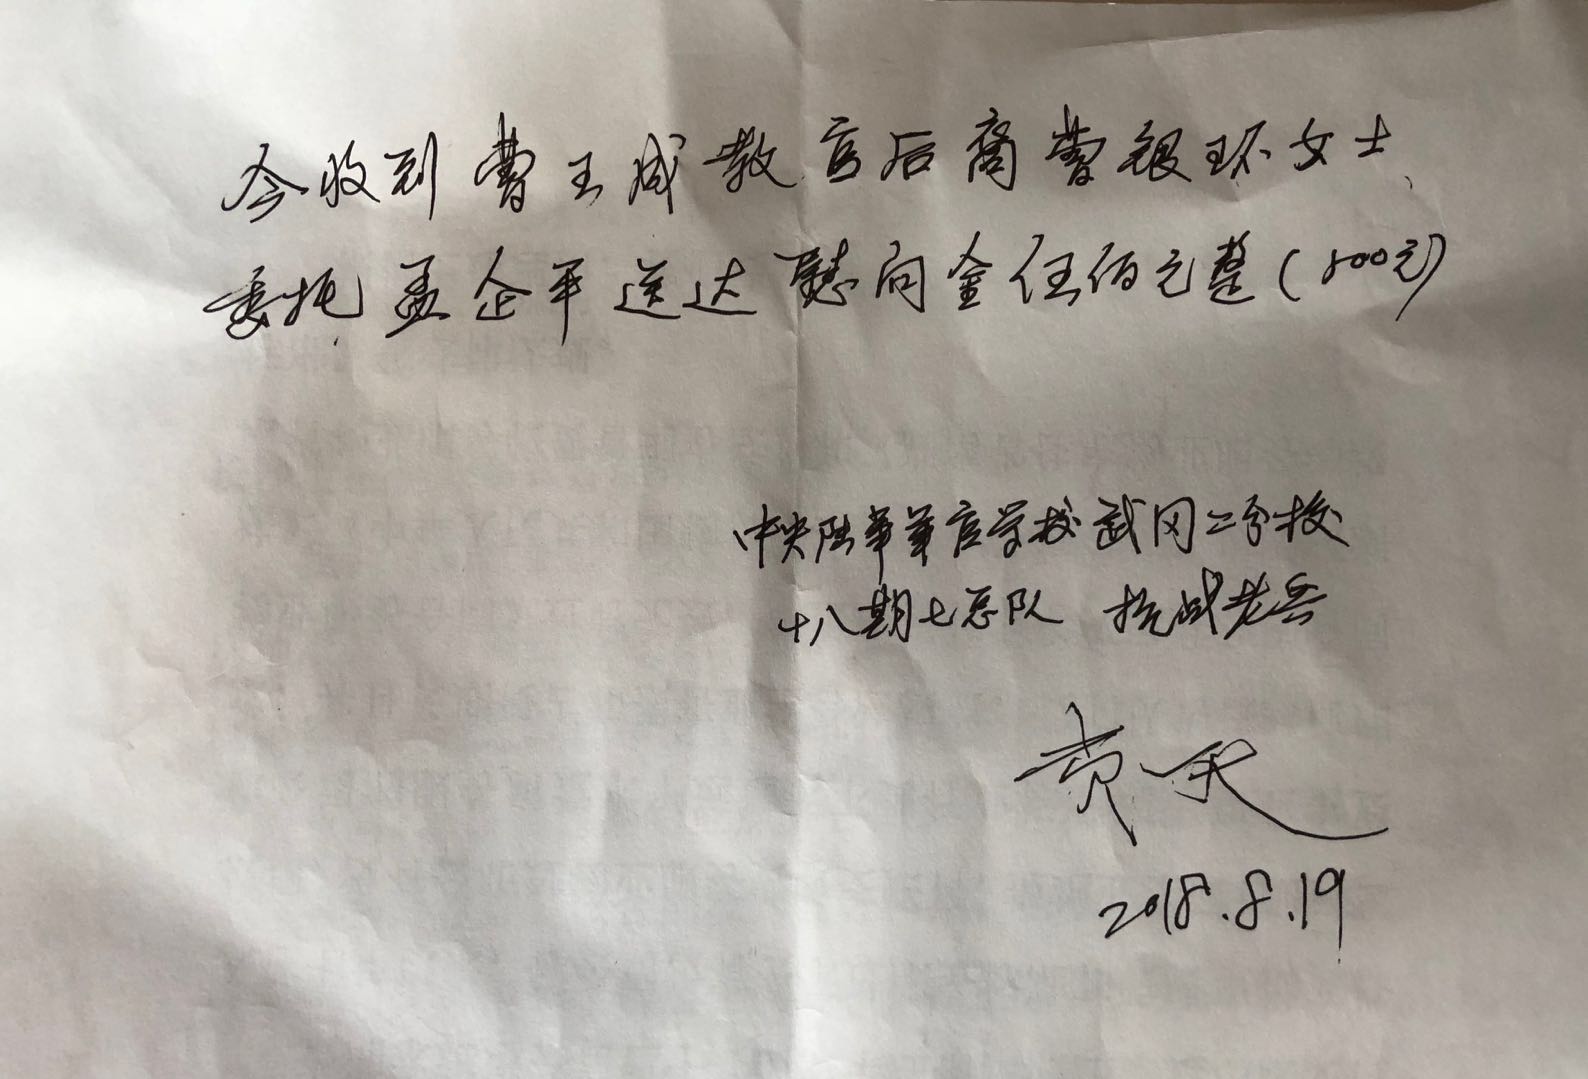 今收到曹王成教官后裔曹银环女士
委托孟企平送达慰问金伍佰元整(500元)
中央陆军军官学校武冈二分校
十八期七总队 抗战老兵
2018.8.19